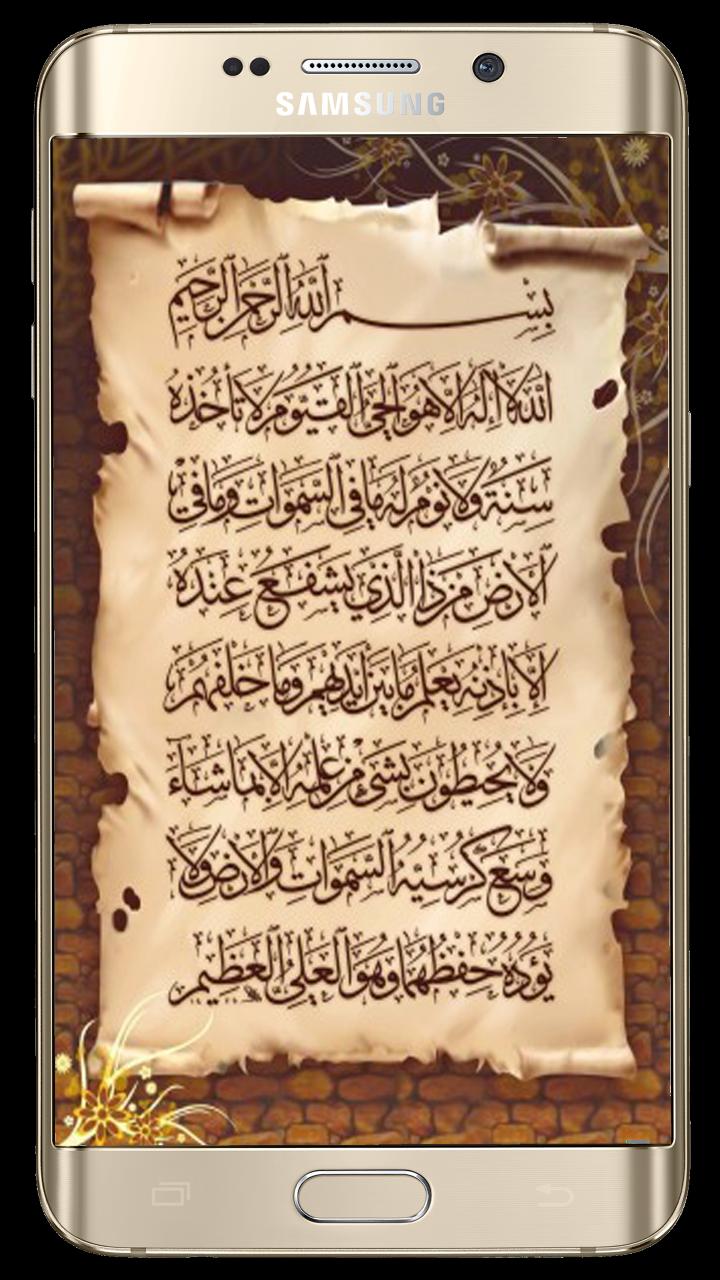 SAMSUNG
بِسْمِ اللَّهِ الرَّحْمَٰنِ الرَّحِيمِ
اللَّهُ لَا إِلَٰهَ إِلَّا هُوَ الْحَيُّ الْقَيُّومُ لَا تَأْخُذُهُ
سِنَةٌ وَلَا نَوْمٌ لَهُ مَا فِي السَّمَوَاتِ وَمَا فِي
الْأَرْضِ مَنْ ذَا الَّذِي يَشْفَعُ عِنْدَهُ
إِلَّا بِإِذْنِهِ يَعْلَمُ مَا بَيْنَ أَيْدِيهِمْ وَمَا خَلْفَهُمْ
وَلَا يُحِيطُونَ بِشَيْءٍ مِنْ عِلْمِهِ إِلَّا بِمَا شَاءَ
وَسِعَ كُرْسِيُّهُ السَّمَوَاتِ وَالْأَرْضَ وَلَا
يَئُودُهُ حِفْظُهُمَا وَهُوَ الْعَلِيُّ الْعَظِيمُ